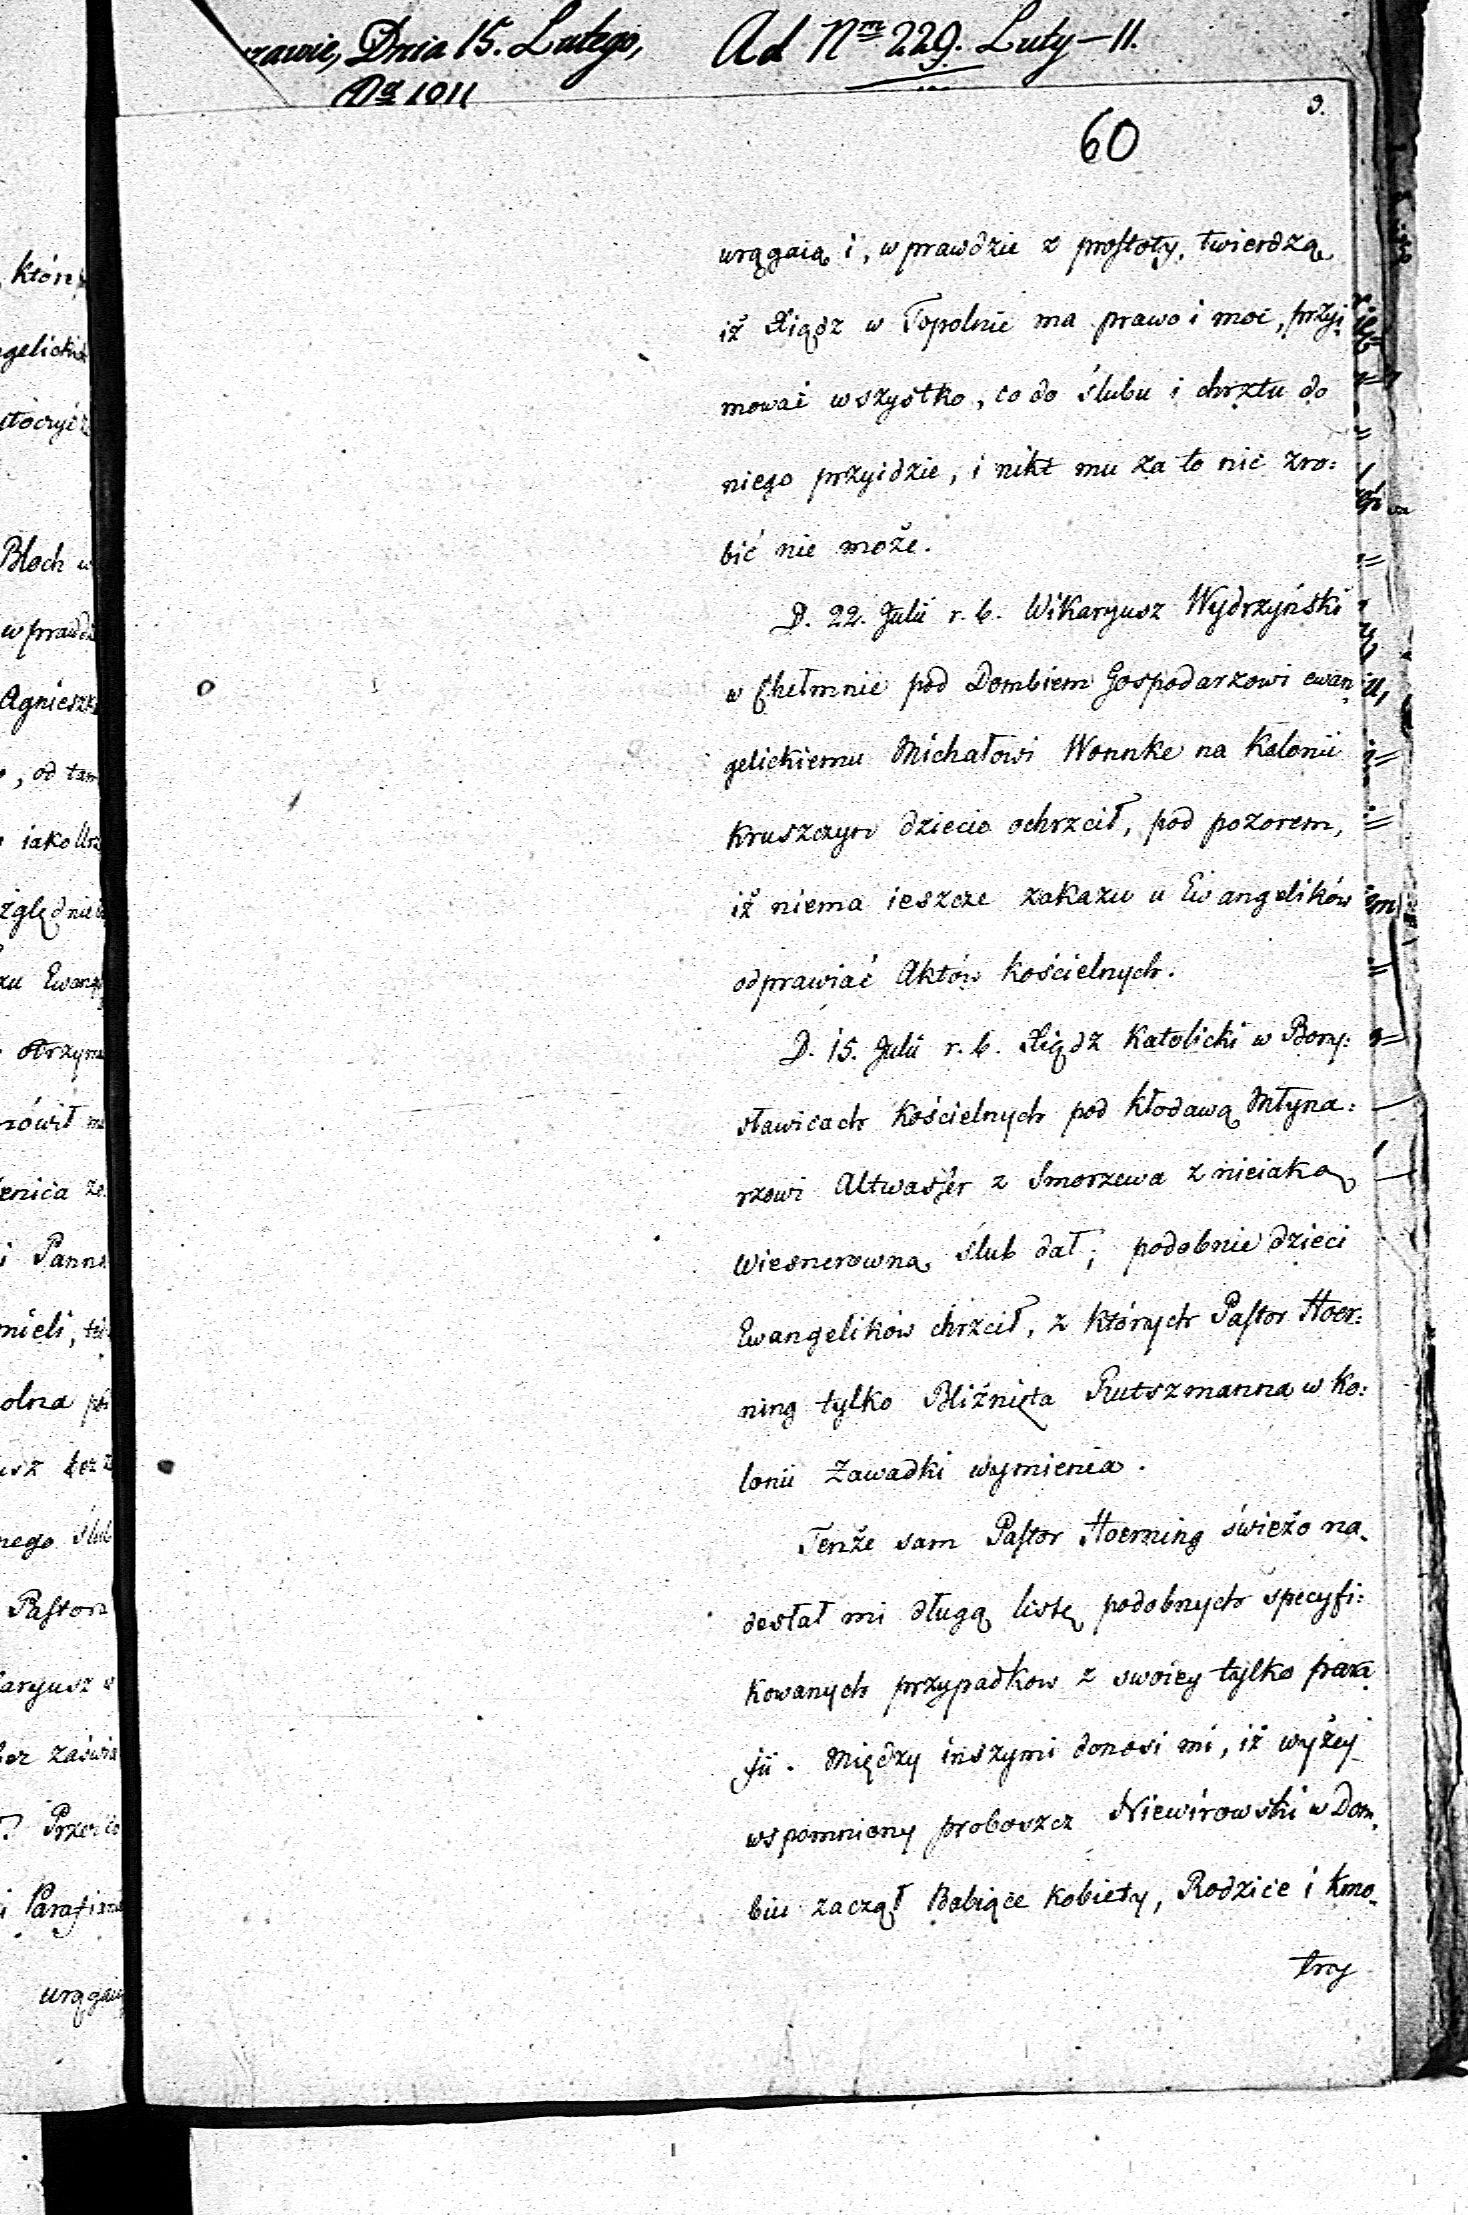 Dnia 15. Lutego, Ad Nm 229. Luty – 11.
60
urągaią i, w prawdzie z prostoty, twierdzą
iż Xiądz w Topolnie ma prawo i moc, przyi
mować wszystko, co do ślubu i chrztu do
niego przyidzie, i nikt mu za to nic zro:
bić nie może.
D. 22. Julii r. b. Wikaryusz Wydrzyński
w Chełmnie pod Dombiem Gospodarzowi ewan
gelickiemu Michałowi Wonnke na Kolonii
Kruszczyn dziecie ochrzcił, pod pozorem,
iż niema ieszcze zakazu u Ewangelików
odprawiać Aktów Kościelnych.
D. 15. Julii r. b. Xiądz Katolicki w Bory:
sławicach Kościelnych pod Kłodawą Młyna:
rzowi Altwasser z Smorzewa z nieiaką
Wiesnerowną ślub dał; podobnie dzieci
Ewangelików chrzcił, z których Pastor Hoer:
ning tylko Bliźnięta Rutszmanna w Ko:
lonii Zawadki wymienia.
Tenże sam Pastor Hoerning świeżo na
desłał mi długą listę podobnych specyfi:
kowanych przypadkow z swoiey tylko para
fii. Między inszymi donosi mi, iż wyżey
wspomniony proboszcz Niewirowski w Dom
biu zaczął Babiące Kobiety, Rodzice i Kmo
try